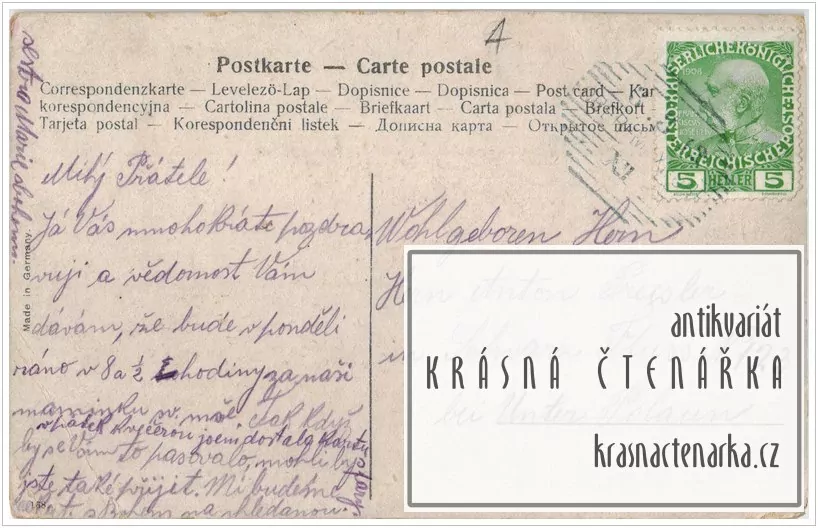 A
Postkarte — Carte postale
Correspondenzkarte — Levelező-Lap — Dopisnice — Dopisnica — Post card — Kar
korespondencyjna — Cartolina postale — Briefkaart — Carta postala — Brefkort
Tarjeta postal — Korespondenčni listek — Дописна карта — Открытое письм
KAISERLICHE KÖNIGLICHE ÖSTERREICHISCHE POST
1908
5 HELLER 5
XI
Made in Germany.
Milý Přátele!
Já Vás mnohokráte pozdra
vuji a vědomost Vám
dávám, že bude v pondělí
ráno v 8 a ½ hodiny za naši
maminku sv. mše. Jak když
v pátek k večerou jsem dostala kartu
by se Vám to pasovalo, mohli by
jste také přijet. Mi budeme
na shledanou.
sestra Marie
Wohlgeboren Herrn
Herrn Anton
in
bei Unter
antikvariát
KRÁSNÁ ČTENÁŘKA
krasnactenarka.cz